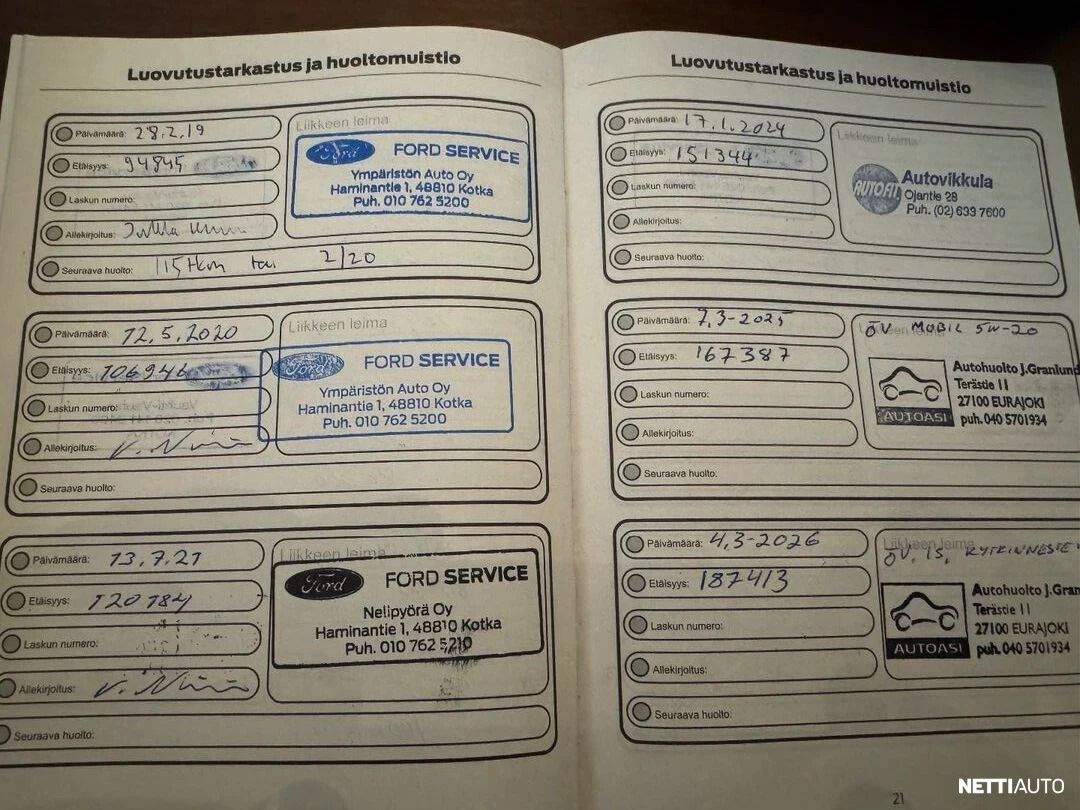 Luovutustarkastus ja huoltomuistio
Päivämäärä: 28.2.19
Etäisyys: 94845
Laskun numero:
Allekirjoitus:
Seuraava huolto: 115tkm tai 2/20
Liikkeen leima
Ford FORD SERVICE
Ympäristön Auto Oy
Haminantie 1, 48810 Kotka
Puh. 010 762 5200
Päivämäärä: 12.5.2020
Etäisyys: 106946
Laskun numero:
Allekirjoitus:
Seuraava huolto:
Liikkeen leima
Ford FORD SERVICE
Ympäristön Auto Oy
Haminantie 1, 48810 Kotka
Puh. 010 762 5200
Päivämäärä: 13.7.21
Etäisyys: 120784
Laskun numero:
Allekirjoitus:
Seuraava huolto:
Liikkeen leima
Ford FORD SERVICE
Nelipyörä Oy
Haminantie 1, 48810 Kotka
Puh. 010 762 5210
Luovutustarkastus ja huoltomuistio
Päivämäärä: 17.1.2024
Etäisyys: 151344
Laskun numero:
Allekirjoitus:
Seuraava huolto:
Liikkeen leima
AUTOFIT Autovikkula
Ojantie 28
Puh. (02) 633 7600
Päivämäärä: 7.3-2025
Etäisyys: 167387
Laskun numero:
Allekirjoitus:
Seuraava huolto:
Liikkeen leima
ÖV MOBIL 5W-20
AUTOASI
Autohuolto J.Granlund
Terästie 11
27100 EURAJOKI
puh. 040 5701934
Päivämäärä: 4.3-2026
Etäisyys: 187413
Laskun numero:
Allekirjoitus:
Seuraava huolto:
Liikkeen leima
ÖV. 15,
AUTOASI
Autohuolto J.Gran
Terästie 11
27100 EURAJOKI
puh. 040 5701934
21
NETTIAUTO